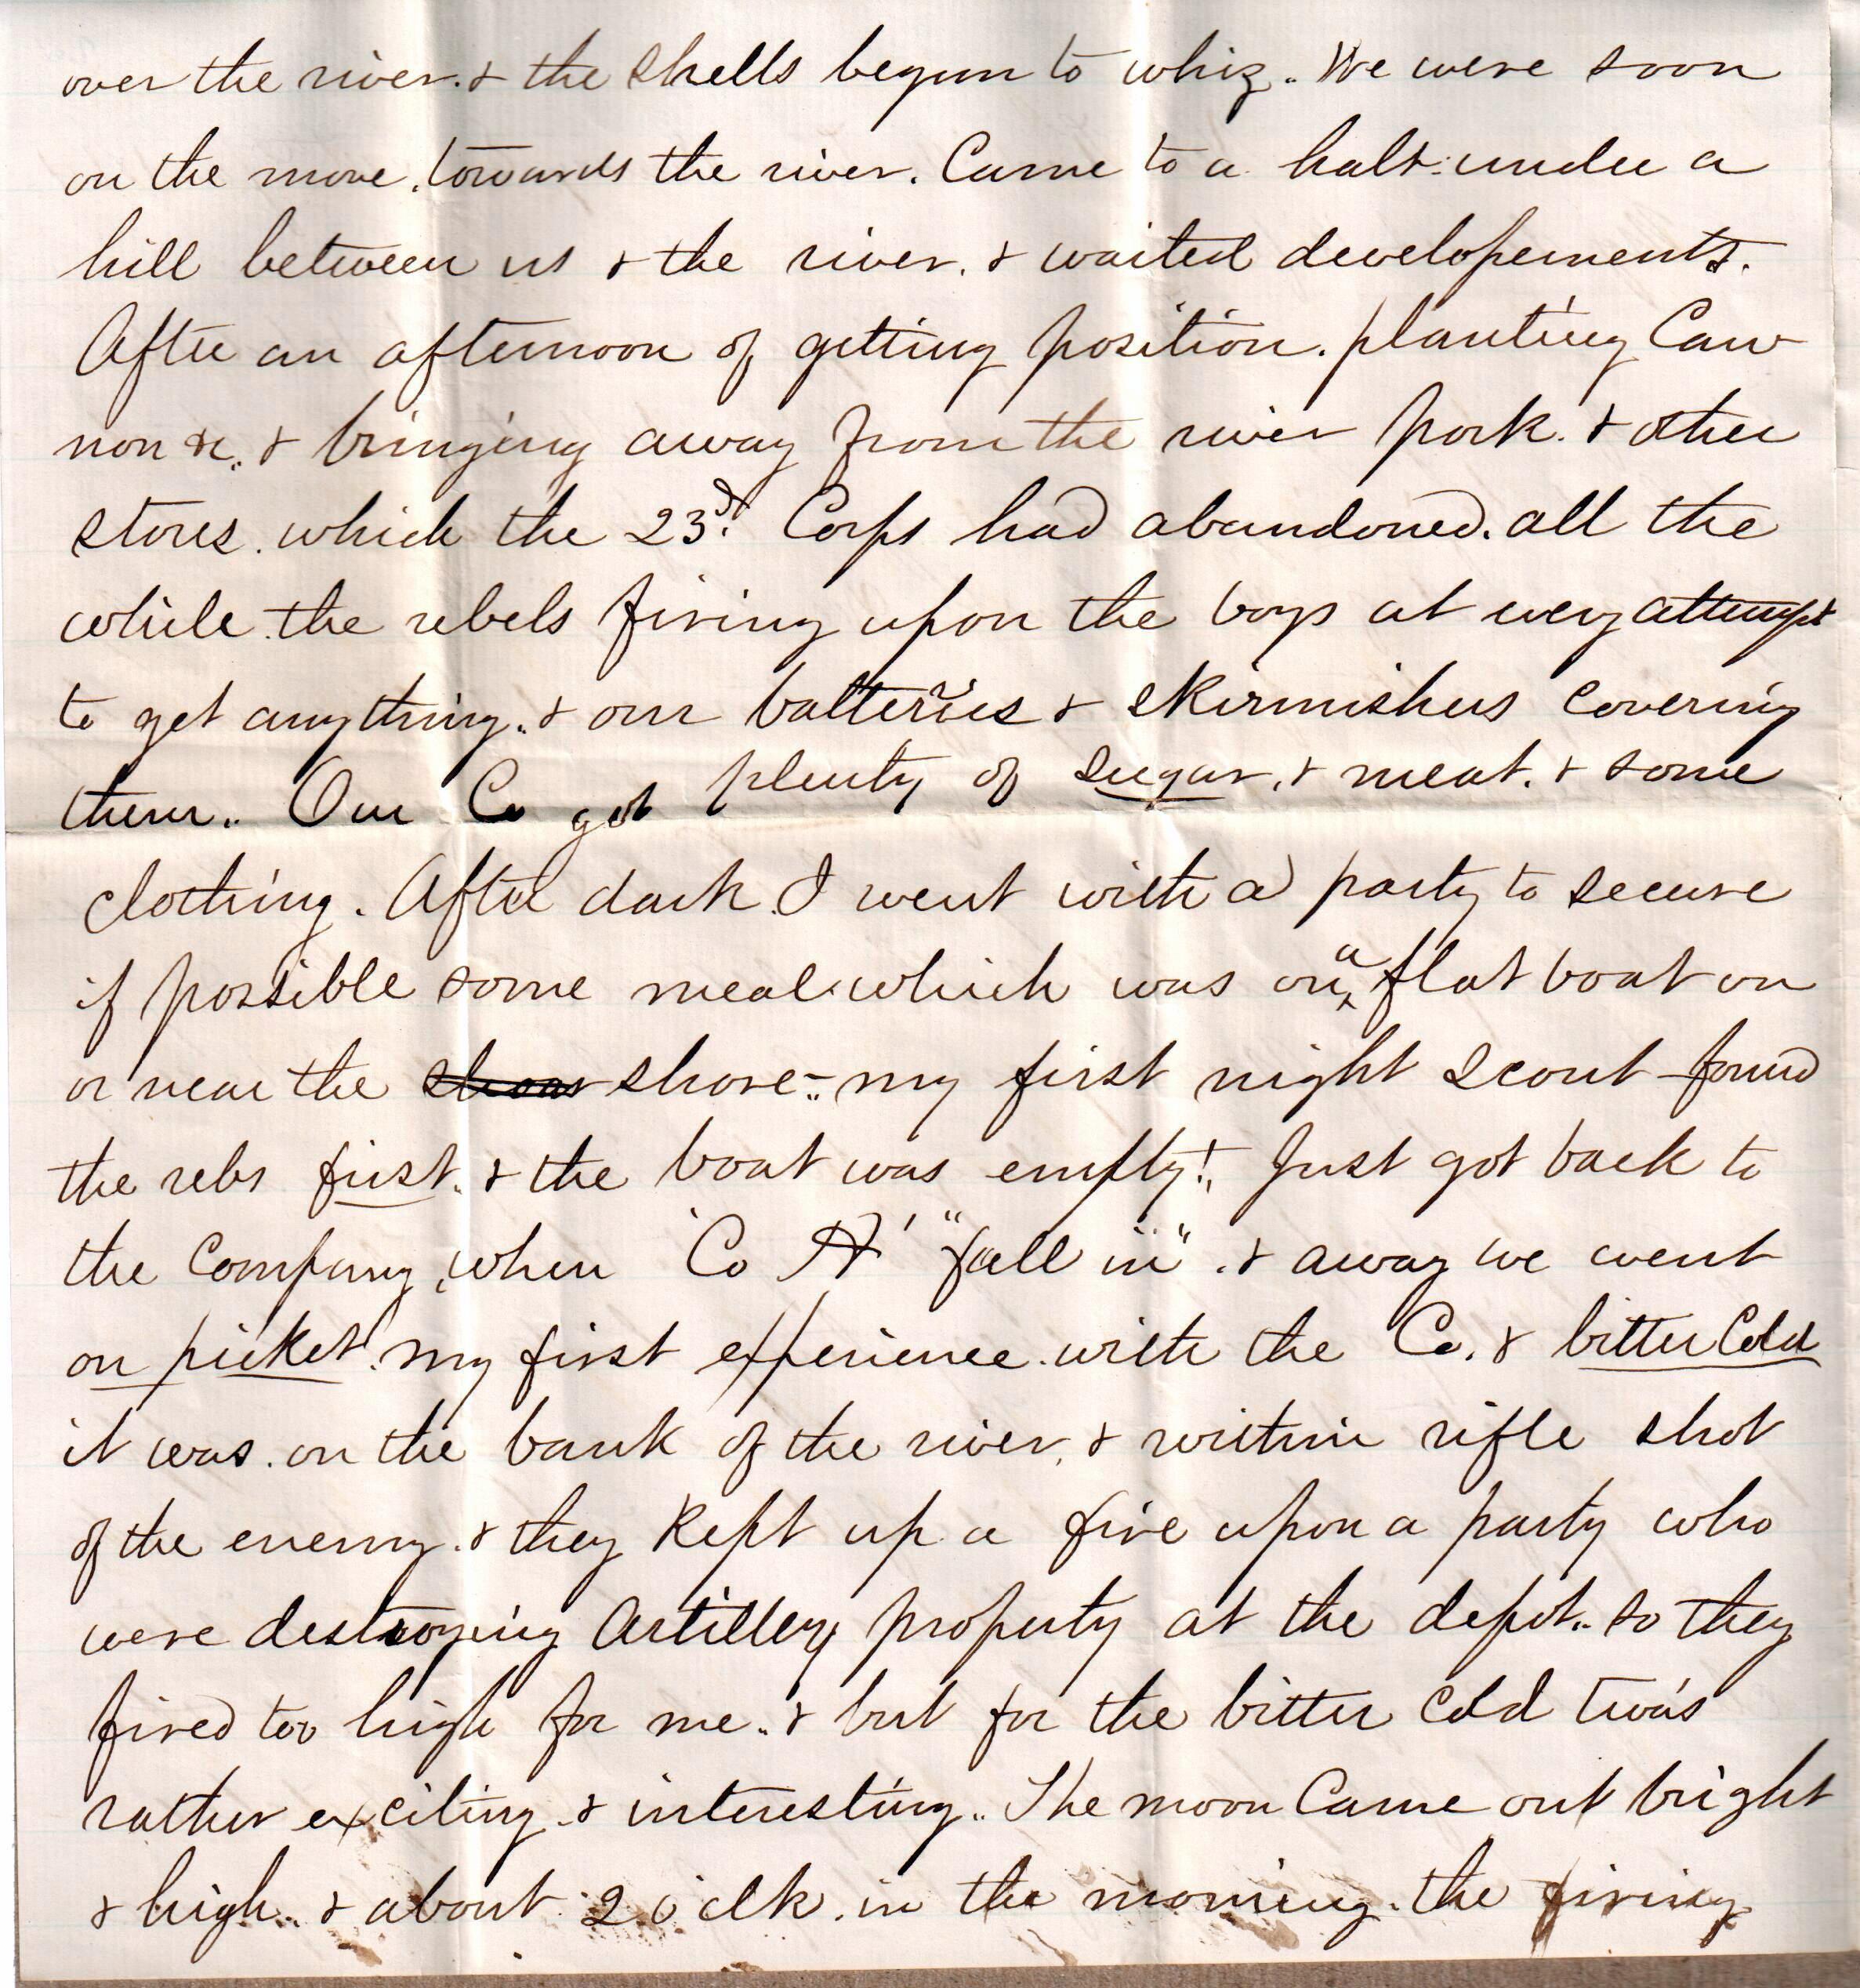 over the river. & the shells begun to whiz.. We were soon
on the move. towards the river. Came to a halt. under a
hill between us & the river. & waited developements.
After an afternoon of getting position. planting Can
non &c.. & bringing away from the river pork. & other
stores. which the 23d. Corps had abandoned. all the
while. the rebels firing upon the boys at every attempt
to get anything.. & our batteries & skirmishers covering
them.. Our Co got plenty of sugar. & meat. & some
clothing. After dark. I went with a party to secure
if possible some meal. which was on a flat boat on
or near the shore - my first night scout - found
the rebs first. & the boat was empty!.. Just got back to
the Company, when 'Co A' "fall in". & away we went
on picket. my first experience. with the Co. & bitter Cold
it was. on the bank of the river. & within rifle shot
of the enemy. & they kept up a fire upon a party who
were destroying Artillery property at the depot.. so they
fired too high for me.. & but for the bitter cold twas
rather exciting. & interesting.. The moon Came out bright
& high.. & about 2 o'clk. in the morning. the firing